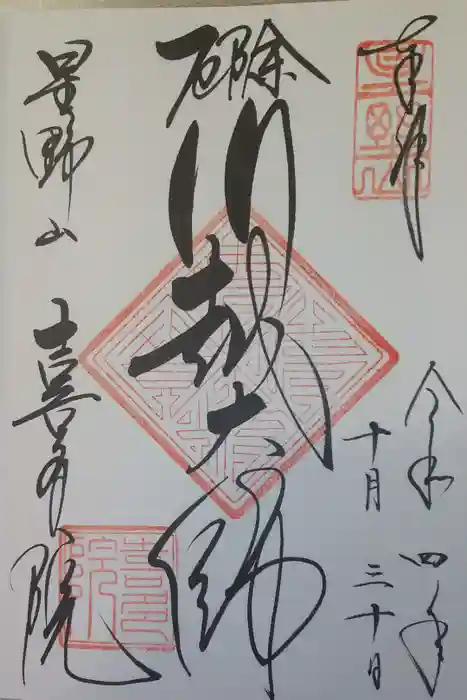 奉拝
令和四年
十月三十日
厄除
川越大師
星野山
喜多院